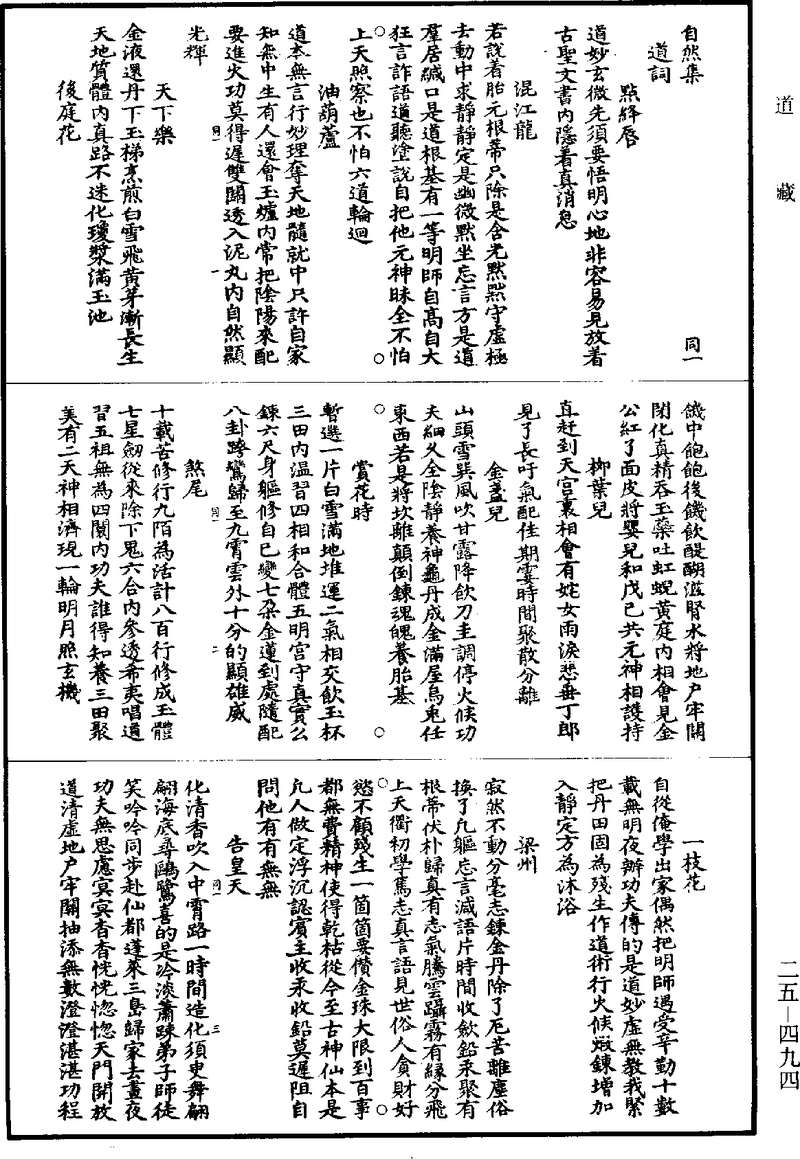 道藏
自然集
同一
道詞
點絳唇
道妙玄微先須要悟明心地非容易見放着
古聖文書內隱着真消息
混江龍
若說着胎元根蒂只除是含光默默守虛極
去動中求靜靜定是幽微默坐忘言方是道
羣居緘口是道根基有一等明師自高自大
狂言詐語道聽塗說自把他元神昧全不怕
上天照察也不怕六道輪迴
油葫蘆
道本無言行妙理奪天地髓就中只許自家
知無中生有人還會玉爐內常把陰陽來配
要進火功莫得遲雙關透入泥丸內自然顯
同一
一
光輝
天下樂
金液還丹下玉梯烹煎白雪飛黃芽漸長生
天地質體內真路不迷化瓊漿滿玉池
後庭花
饑中飽飽後饑飲醍醐滋腎水將地戶牢關
閉化真精吞玉藥吐虹蜺黃庭內相會見金
公紅了面皮將嬰兒和戊己共元神相護持
柳葉兒
直赶到天宮裏相會有姹女雨淚悲垂丁郎
見了長吁氣配佳期霎時間聚散分離
金盞兒
山頭雪巽風吹甘露降飲刀圭調停火候功
夫細久全陰靜養神龜丹成金滿屋烏兎任
東西若是將坎離顛倒鍊魂魄養胎基
賞花時
暫選一片白雪滿地堆運二氣相交飲玉杯
三田內溫習四相和合體五明宮守真實么
鍊六尺身軀修自己變七朶金蓮到處隨配
八卦跨鸞歸至九霄雲外十分的顯雄威
同一
二
煞尾
十載苦修行九陌為活計八百行修成玉體
七星劒從來除下鬼六合內參透希夷唱道
習五祖無為四闤內功夫誰得知養三田聚
美有二天神相濟現一輪明月照玄機
一枝花
自從俺學出家偶然把明師遇受辛勤十數
載無明夜辦功夫傳的是道妙虛無教我緊
把丹田固為殘生作道術行火候煅鍊增加
入靜定方為沐浴
梁州
寂然不動分毫志鍊金丹除了厄苦離塵俗
換了凡軀忘言減語片時間收歛鉛汞聚有
根蒂伏朴歸真有志氣騰雲躡霧有緣分飛
上天衢初學篤志真言語見世俗人貪財好
慾不顧殘生一箇箇要儹金珠大限到百事
都無費精神使得乾枯從今至古神仙本是
凡人做定浮沉認賓主收汞收鉛莫遲阻自
問他有有無無
告皇天
化清香吹入中霄路一時間造化須吏舞翩
同一
三
翩海底尋鷗鷺喜的是冷淡蕭踈弟子師徒
笑吟吟同步赴仙都蓬萊三島歸家去晝夜
功夫無思慮冥冥杳杳恍恍惚惚天門開放
道清虛地戶牢關抽添無數澄澄湛湛功程
二五—四九四